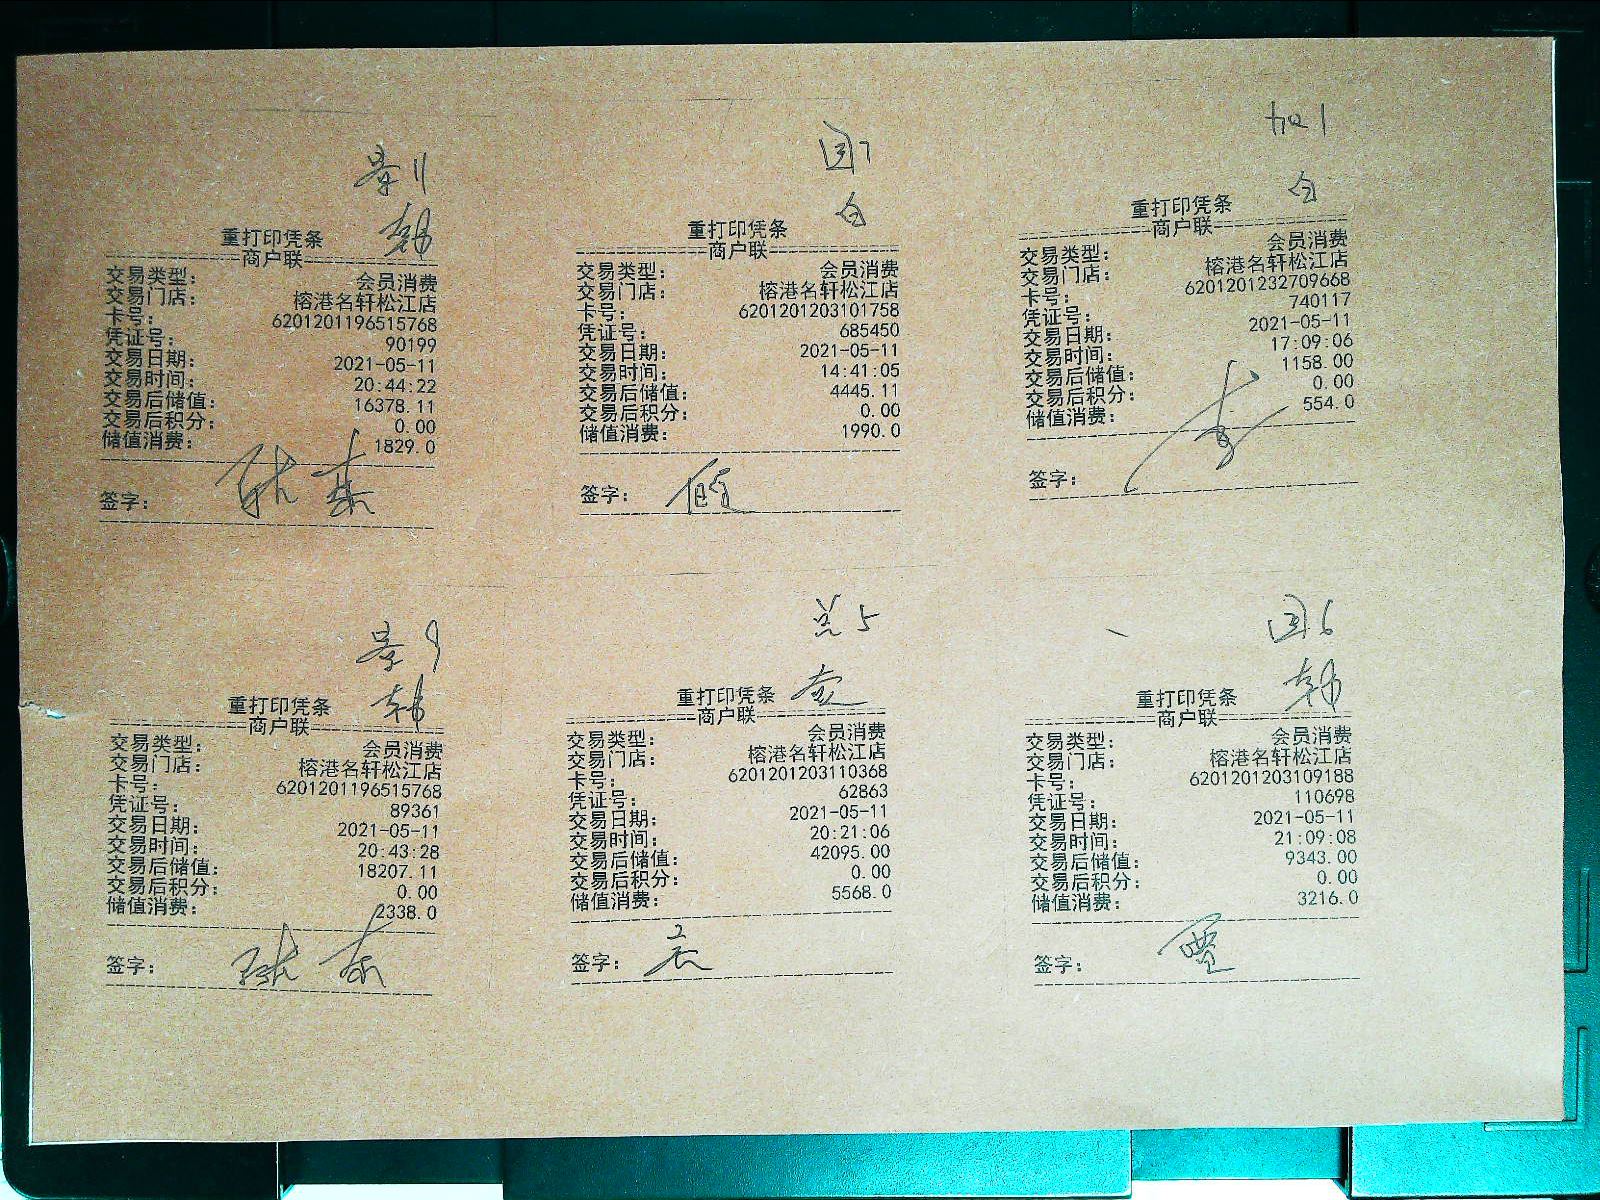 景11
韩
重打印凭条
商户联
交易类型: 会员消费
交易门店: 榕港名轩松江店
卡号: 6201201196515768
凭证号: 90199
交易日期: 2021-05-11
交易时间: 20:44:22
交易后储值: 16378.11
交易后积分: 0.00
储值消费: 1829.0
签字:
国7
重打印凭条
商户联
交易类型: 会员消费
交易门店: 榕港名轩松江店
卡号: 6201201203101758
凭证号: 685450
交易日期: 2021-05-11
交易时间: 14:41:05
交易后储值: 4445.11
交易后积分: 0.00
储值消费: 1990.0
签字:
重打印凭条
商户联
交易类型: 会员消费
交易门店: 榕港名轩松江店
卡号: 6201201232709668
凭证号: 740117
交易日期: 2021-05-11
交易时间: 17:09:06
交易后储值: 1158.00
交易后积分: 0.00
储值消费: 554.0
签字:
景9
韩
重打印凭条
商户联
交易类型: 会员消费
交易门店: 榕港名轩松江店
卡号: 6201201196515768
凭证号: 89361
交易日期: 2021-05-11
交易时间: 20:43:28
交易后储值: 18207.11
交易后积分: 0.00
储值消费: 2338.0
签字:
总5
重打印凭条
商户联
交易类型: 会员消费
交易门店: 榕港名轩松江店
卡号: 6201201203110368
凭证号: 62863
交易日期: 2021-05-11
交易时间: 20:21:06
交易后储值: 42095.00
交易后积分: 0.00
储值消费: 5568.0
签字:
国6
韩
重打印凭条
商户联
交易类型: 会员消费
交易门店: 榕港名轩松江店
卡号: 6201201203109188
凭证号: 110698
交易日期: 2021-05-11
交易时间: 21:09:08
交易后储值: 9343.00
交易后积分: 0.00
储值消费: 3216.0
签字: